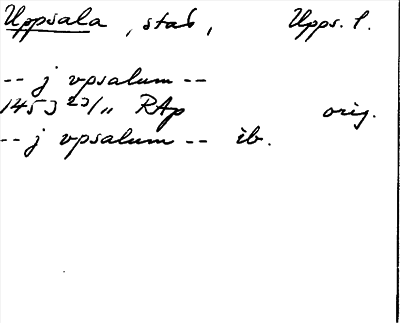 Uppsala, stad, Upps. l.
-- j vpsalum --
1453 23/11 RAp orig.
-- j vpsalum -- ib.